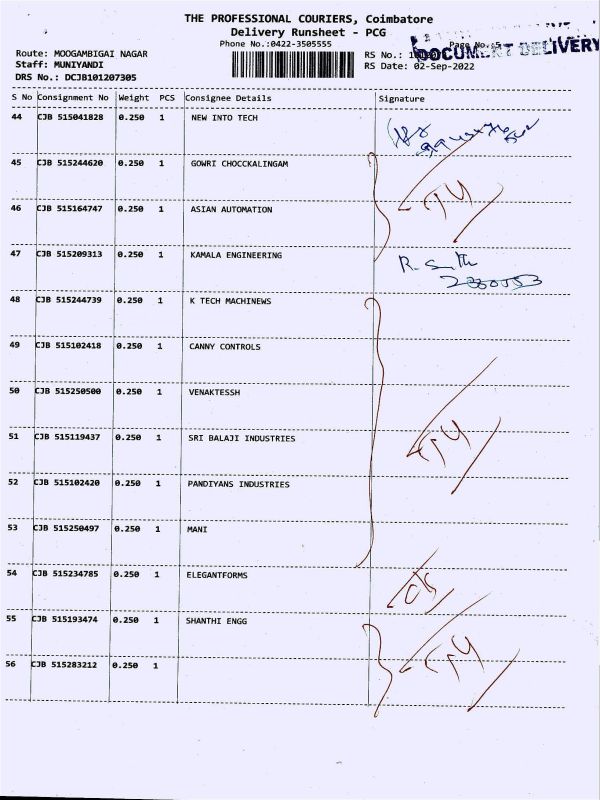 THE PROFESSIONAL COURIERS, Coimbatore
Delivery Runsheet - PCG
Phone No.:0422-3505555
Page No.:5
DOCUMENT DELIVERY
Route: MOOGAMBIGAI NAGAR
RS No.:
Staff: MUNIYANDI
RS Date: 02-Sep-2022
DRS No.: DCJB101207305
S No Consignment No Weight PCS Consignee Details Signature
44 CJB 515041828 0.250 1 NEW INTO TECH
45 CJB 515244620 0.250 1 GOWRI CHOCCKALINGAM
46 CJB 515164747 0.250 1 ASIAN AUTOMATION
47 CJB 515209313 0.250 1 KAMALA ENGINEERING
48 CJB 515244739 0.250 1 K TECH MACHINEWS
49 CJB 515102418 0.250 1 CANNY CONTROLS
50 CJB 515250500 0.250 1 VENAKTESSH
51 CJB 515119437 0.250 1 SRI BALAJI INDUSTRIES
52 CJB 515102420 0.250 1 PANDIYANS INDUSTRIES
53 CJB 515250497 0.250 1 MANI
54 CJB 515234785 0.250 1 ELEGANTFORMS
55 CJB 515193474 0.250 1 SHANTHI ENGG
56 CJB 515283212 0.250 1